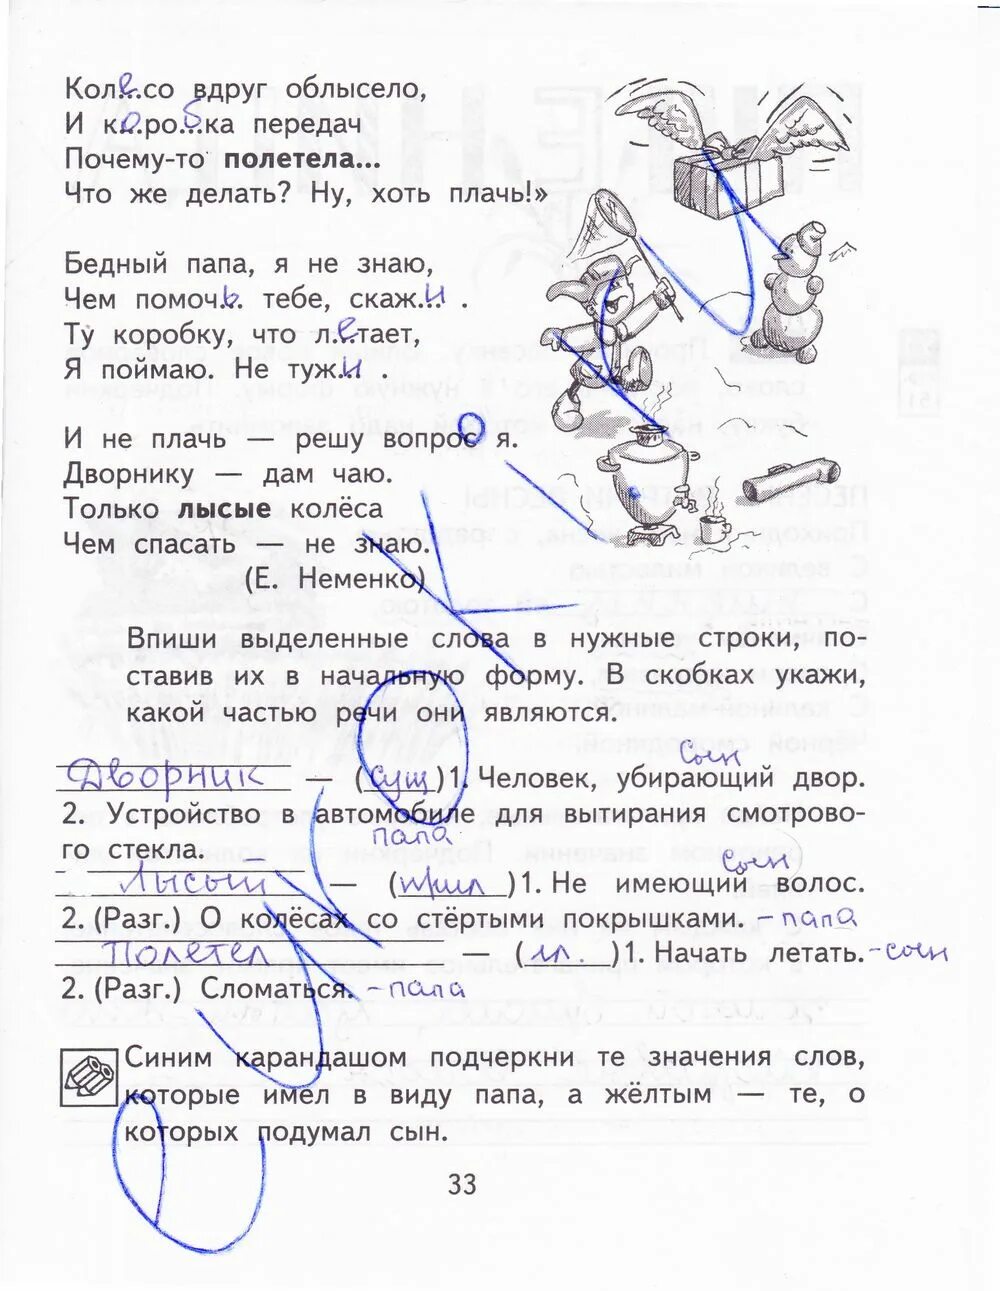 Колесо вдруг облысело,
И коробка передач
Почему-то полетела...
Что же делать? Ну, хоть плачь!»
Бедный папа, я не знаю,
Чем помочь тебе, скажи .
Ту коробку, что летает,
Я поймаю. Не тужи .
И не плачь — решу вопрос я.
Дворнику — дам чаю.
Только лысые колёса
Чем спасать — не знаю.
(Е. Неменко)
Впиши выделенные слова в нужные строки, по-
ставив их в начальную форму. В скобках укажи,
какой частью речи они являются.
сын
Дворник — (сущ)1. Человек, убирающий двор.
2. Устройство в автомобиле для вытирания смотрово-
го стекла. папа
сын
Лысый — (прил)1. Не имеющий волос.
2. (Разг.) О колёсах со стёртыми покрышками. - папа
Полетел — (гл.)1. Начать летать. - сын
2. (Разг.) Сломаться. - папа
Синим карандашом подчеркни те значения слов,
которые имел в виду папа, а жёлтым — те, о
которых подумал сын.
33